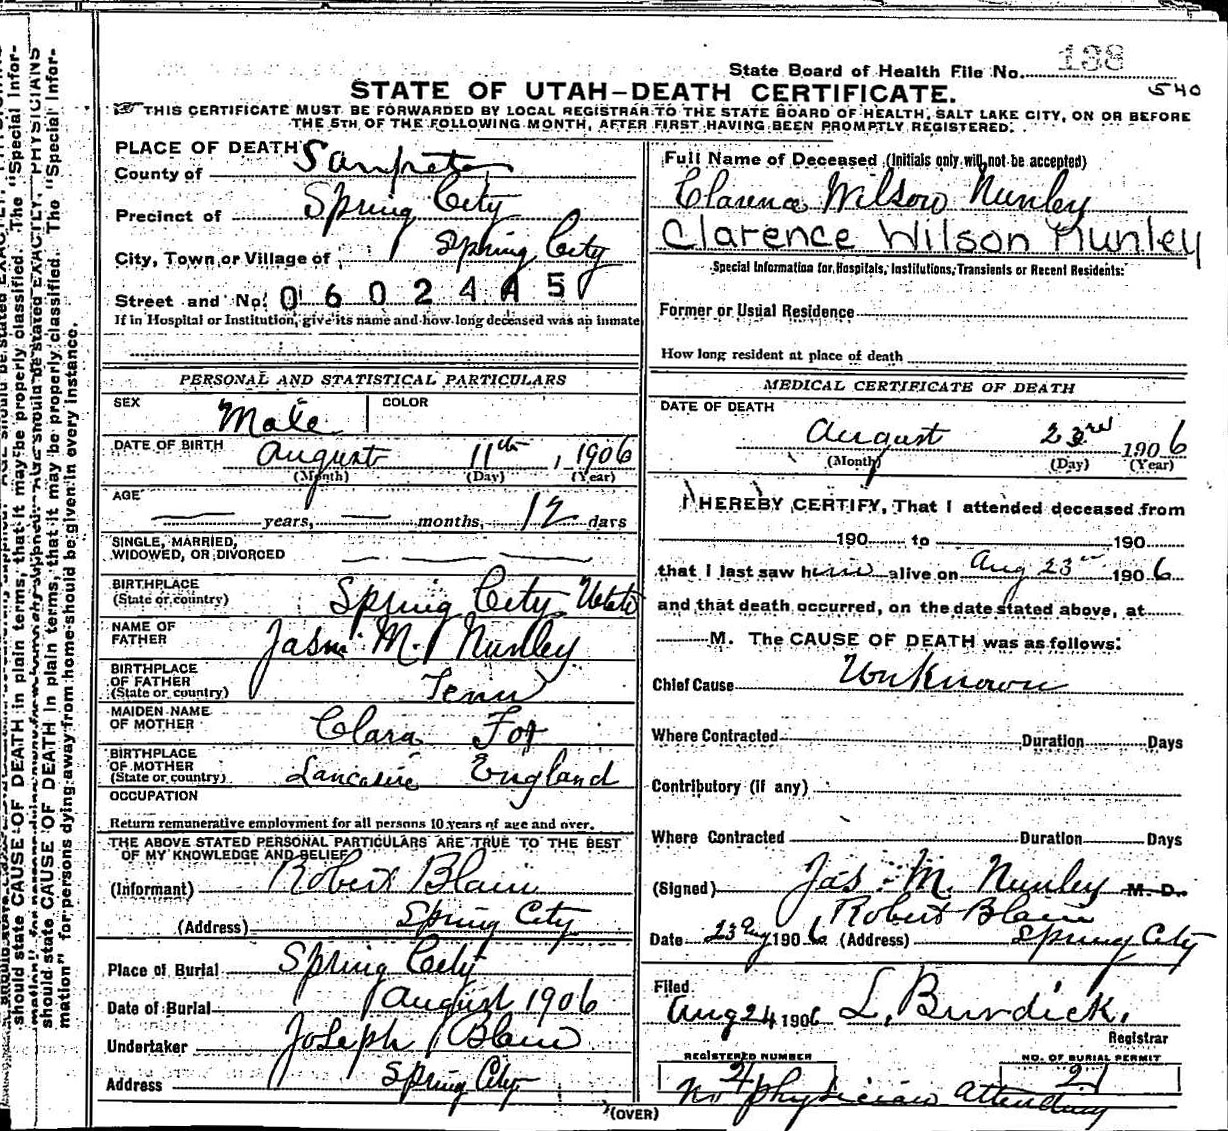 State Board of Health File No. 138
540
STATE OF UTAH—DEATH CERTIFICATE.
THIS CERTIFICATE MUST BE FORWARDED BY LOCAL REGISTRAR TO THE STATE BOARD OF HEALTH, SALT LAKE CITY, ON OR BEFORE
THE 5TH OF THE FOLLOWING MONTH, AFTER FIRST HAVING BEEN PROMPTLY REGISTERED.
PLACE OF DEATH
County of Sanpete
Precinct of Spring City
City, Town or Village of Spring City
Street and No. 0602445
If in Hospital or Institution, give its name and how long deceased was an inmate
PERSONAL AND STATISTICAL PARTICULARS
SEX Male COLOR
DATE OF BIRTH August 11th, 1906
(Month) (Day) (Year)
AGE — years, — months, 12 days
SINGLE, MARRIED,
WIDOWED, OR DIVORCED — — —
BIRTHPLACE
(State or country) Spring City Utah
NAME OF
FATHER M. Nunley
BIRTHPLACE
OF FATHER
(State or country) Tenn
MAIDEN NAME
OF MOTHER Clara
BIRTHPLACE
OF MOTHER
(State or country) England
OCCUPATION
Return remunerative employment for all persons 10 years of age and over.
THE ABOVE STATED PERSONAL PARTICULARS ARE TRUE TO THE BEST
OF MY KNOWLEDGE AND BELIEF
(Informant) Robert Blain
(Address) Spring City
Place of Burial Spring City
Date of Burial August 1906
Undertaker Joseph Blain
Address Spring City
(OVER)
Full Name of Deceased (Initials only will not be accepted)
Clarence Wilson Nunley
Clarence Wilson Nunley
Special Information for Hospitals, Institutions, Transients or Recent Residents:
Former or Usual Residence
How long resident at place of death
MEDICAL CERTIFICATE OF DEATH
DATE OF DEATH
August 23rd 1906
(Month) (Day) (Year)
I HEREBY CERTIFY, That I attended deceased from
190 to 190
that I last saw him alive on Aug 23rd 1906
and that death occurred, on the date stated above, at
M. The CAUSE OF DEATH was as follows:
Chief Cause Unknown
Where Contracted Duration Days
Contributory (if any)
Where Contracted Duration Days
(Signed) Jas. M. Nunley M. D.
Robert Blain
Date 23 Aug 1906 (Address) Spring City
Filed
Aug 24 1906 L. Burdick.
Registrar
REGISTERED NUMBER NO. OF BURIAL PERMIT
21
No physician attending
should state CAUSE OF DEATH in plain terms, that it may be properly classified. The "Special Infor-
should state CAUSE OF DEATH in plain terms, that it may be properly classified. The "Special Infor-
mation" for persons dying away from home should be given in every instance.